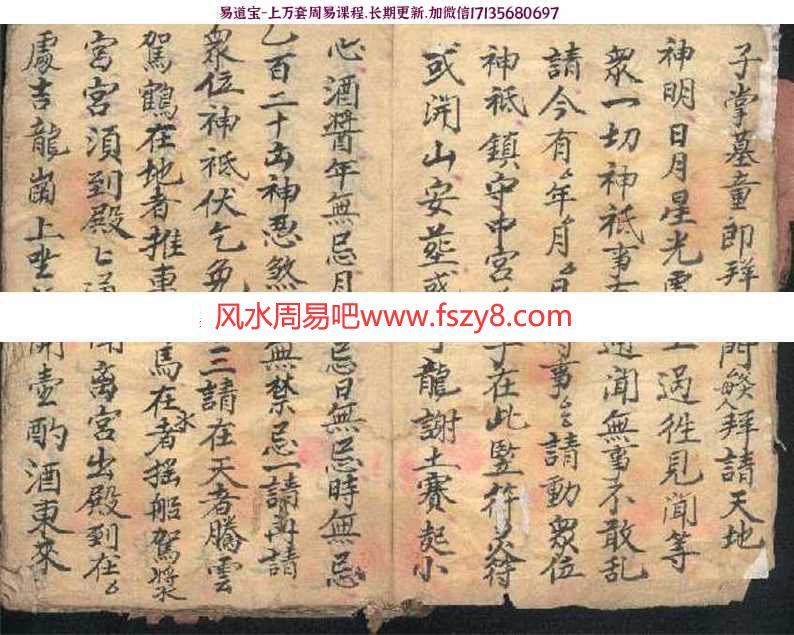 易道宝-上万套周易课程.长期更新.加微信17135680697
子掌墓童郎拜門 拜請天地
神明日月星光 過徃見聞等
衆一切神祇事 聞無事不敢乱
請今有年月日 事請動衆位
神祇鎮守中宮 在此竪符
或開山安葬或 龍謝土賽起小
风水周易吧www.fszy8.com
心酒醬年無忌月 忌日無忌時無忌
乙百二十 神恶煞 無禁忌一請再請
衆位神祇伏乞 三請在天者騰雲
駕鶴在地者推車 馬在水者揺船駕槳
宮宮須到殿 离宮出殿到在
處吉龍崗上坐 開壺酌酒東來